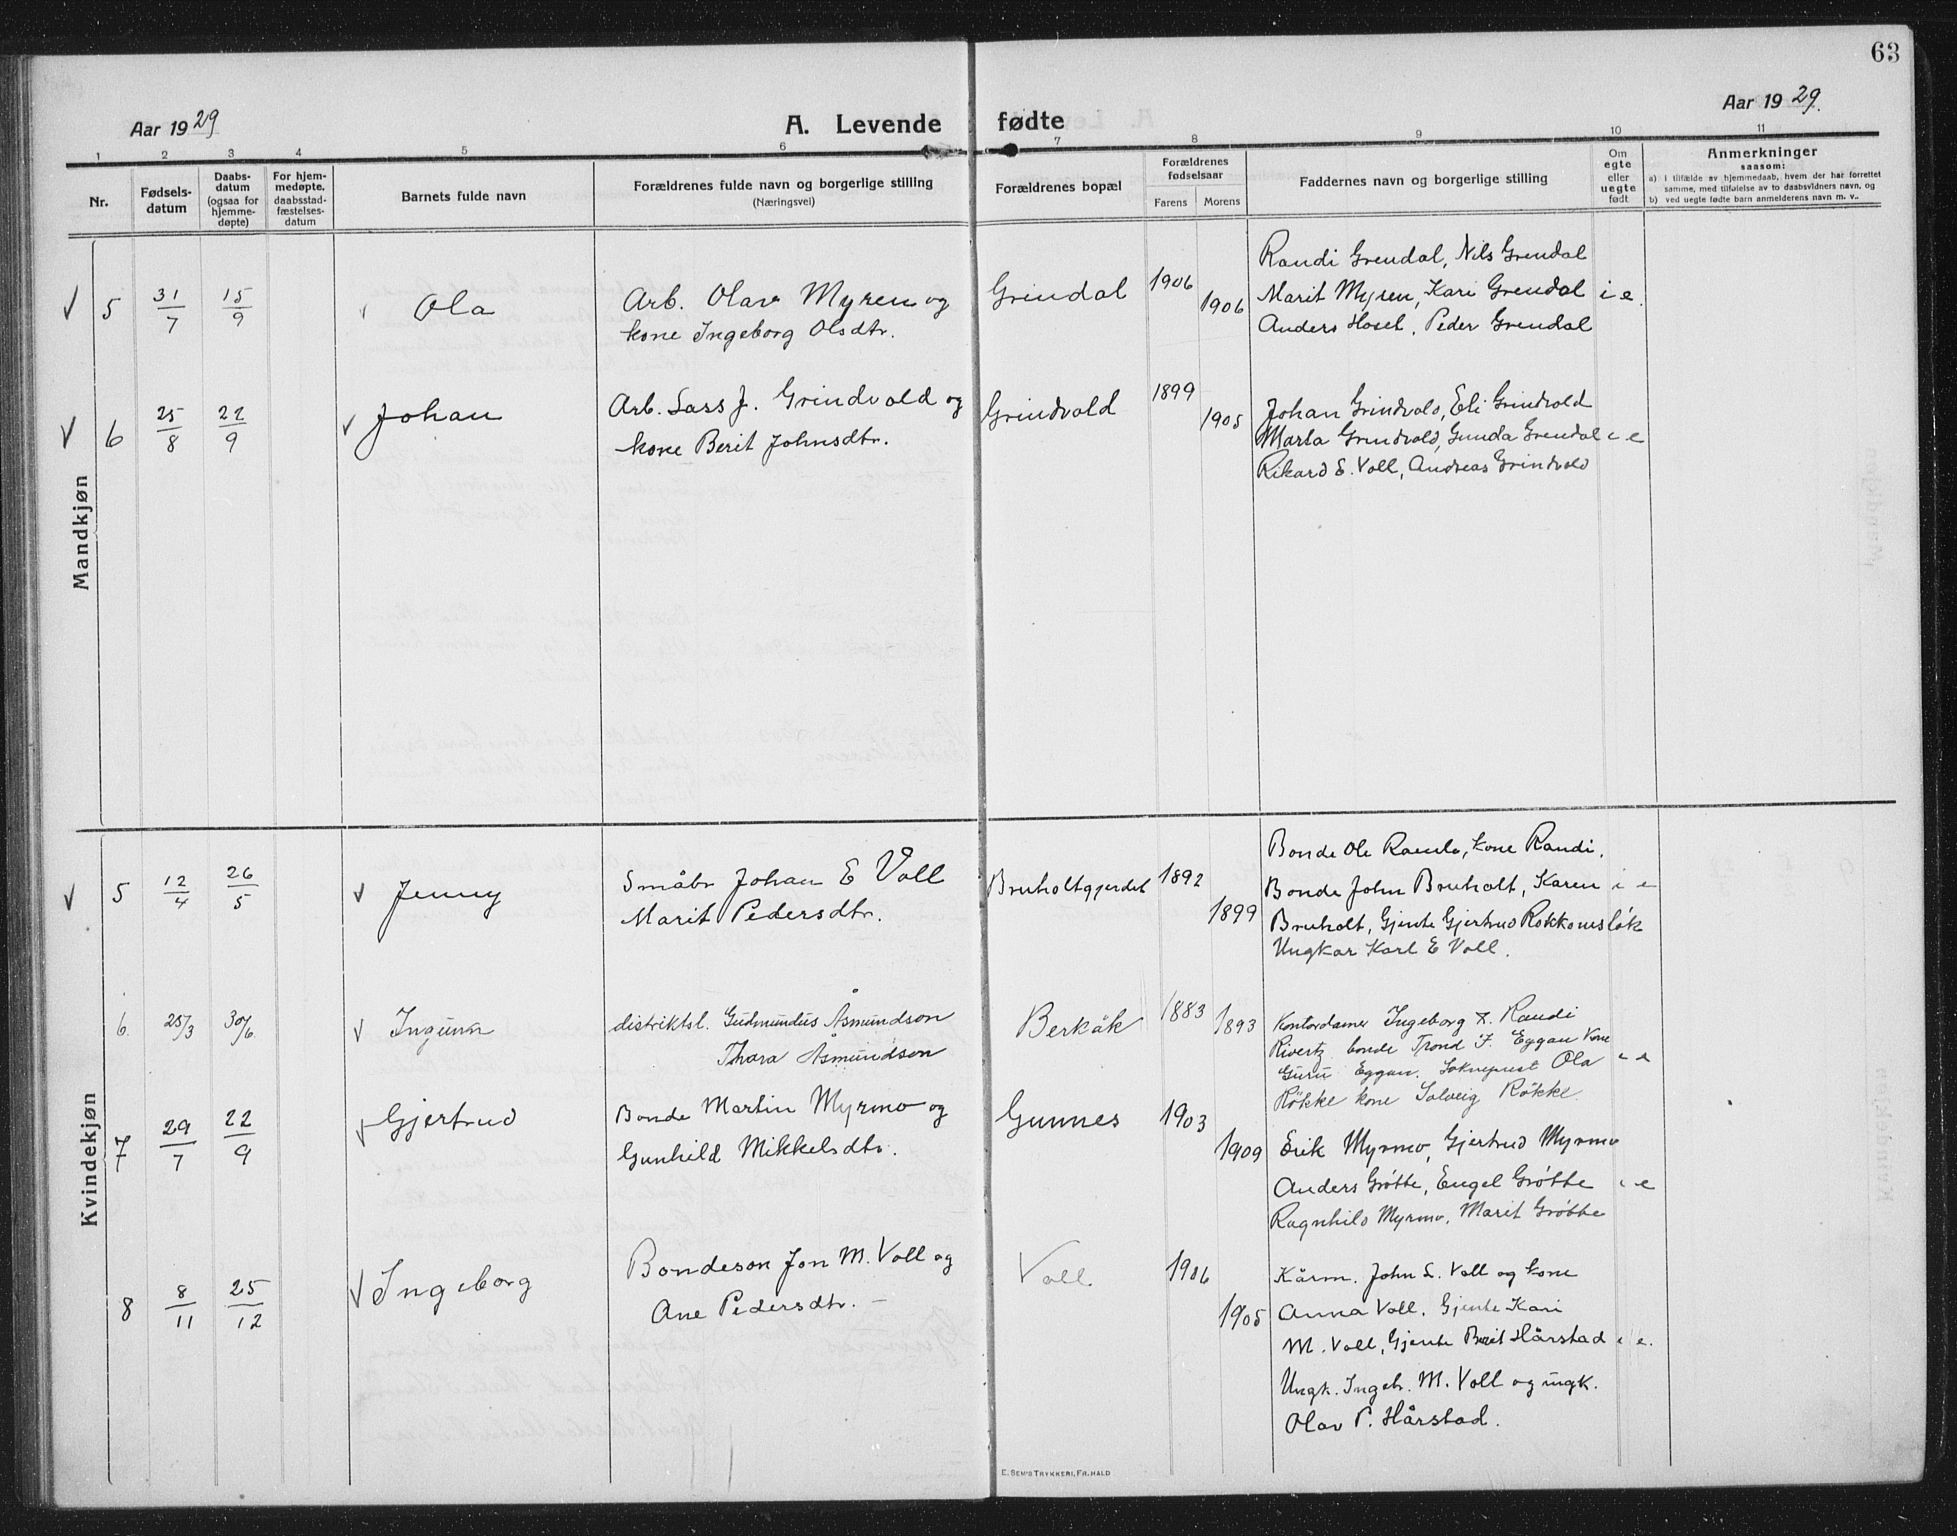 63
Aar 1929
A. Levende fødte
Aar 1929.
1 2 3 4 5 6 7 8 9 10 11
Nr.
Fødsels-
datum
Daabs-
datum
(ogsaa for
hjemme-
døpte)
For hjem-
medøpte,
daabsstad-
fæstelses-
datum
Barnets fulde navn
Forældrenes fulde navn og borgerlige stilling
(Næringsvei)
Forældrenes bopæl
Forældrenes
fødselsaar
Farens Morens
Faddernes navn og borgerlige stilling
Om
egte
eller
uegte
født
Anmerkninger
saasom:
a) i tilfælde av hjemmedaab, hvem der har forrettet
samme, med tilføielse av to daabsvidners navn, og
b) ved uegte fødte barn anmelderens navn m. v..
Mandkjøn
5 31/7 15/9 Ola
Arb. Olav Myren og
kone Ingeborg Olsdtr.
Grindal 1906 1906
Randi Grendal, Nils Grendal
Marit Myren, Kari Grendal i e.
Anders Hosel, Peder Grendal
6 25/8 22/9 Johan
Arb. Lars J. Grindvold og
kone Berit Johnsdtr.
Grindvold 1899 1905
Johan Grindvold, Eli Grindvold
Marta Grindvold, Gunda Grendal i e
Rikard E. Voll, Andreas Grindvold
Kvindekjøn
5 12/4 26/5 Jenny
Småbr Johan E Voll
Marit Pedersdtr.
Bruholtgjerdet 1892 1899
Bonde Ole Ramlo, kone Randi.
Bonde John Bruholt, Karen i e
Bruholt, Gjente Gjertrud Rokkonesløk
Ungkar Karl E Voll.
6. 25/3 30/6. Ingunn
distriktsl. Gudmundus Åsmundson
Thora Åsmundson
Berkåk 1883 1893
Kontordamer Ingeborg &. Randi
Rivertz bonde Trond F. Eggan Kone
Guru Eggan. Sokneprest Ola i e
Røkke kone Solveig Røkke.
7 29/7 22/9 Gjertrud
Bonde Martin Myrmo og
Gunhild Mikkelsdtr.
Gunnes 1903 1909
Erik Myrmo, Gjertrud Myrmo
Anders Grøtte, Engel Grøtte i e
Ragnhild Myrmo, Marit Grøtte
8 8/11 25/12 Ingeborg
Bondeson Jon M. Voll og
Ane Pedersdtr. –
Voll 1906 1905
Kårm. John L. Voll og kone
Anna Voll. Gjente Kari
M. Voll, Gjente Berit Hårstad i e.
Ungk. Ingebr. M. Voll og ungk.
Olav P. Hårstad.
E. SEM'S TRYKKERI, FR.HALD